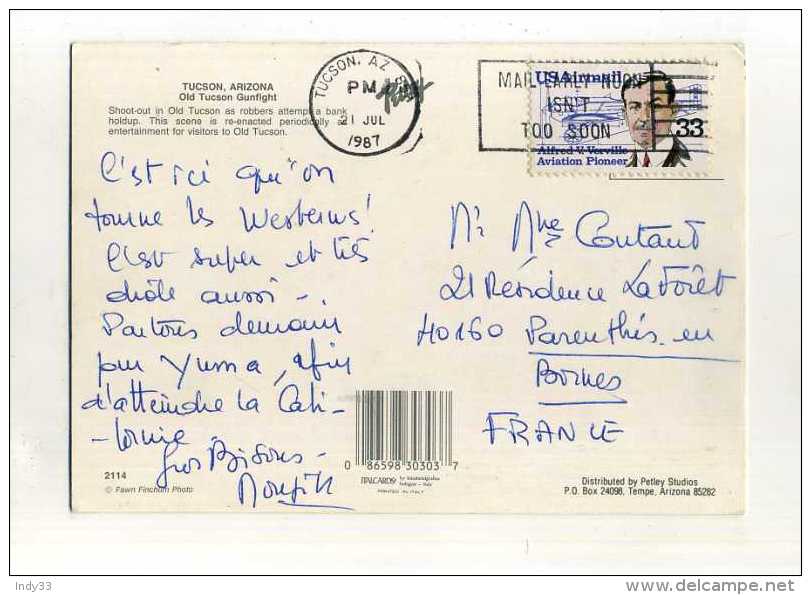 TUCSON, ARIZONA
Old Tucson Gunfight
Shoot-out in Old Tucson as robbers attempt a bank
holdup. This scene is re-enacted periodically as
entertainment for visitors to Old Tucson.
TUCSON, AZ
PM
21 JUL
1987
MAIL EARLY NOON
ISN'T
TOO SOON
USAirmail
33
Alfred V. Verville
Aviation Pioneer
C'est ici qu'on
tourne les Westerns!
C'est super et très
drôle aussi -
Partons demain
pour Yuma, afin
d'atteindre la Cali-
-fornie.
Gros Bisous -
Mr Mme Coutaud
21 Résidence La Forêt
40160 Parenthis en
Bornes
FRANCE
0 86598 30303 7
ITALCARDS
PRINTED IN ITALY
2114
© Fawn Fincham Photo
Distributed by Petley Studios
P.O. Box 24098, Tempe, Arizona 85282
Indy33
delcampe.net